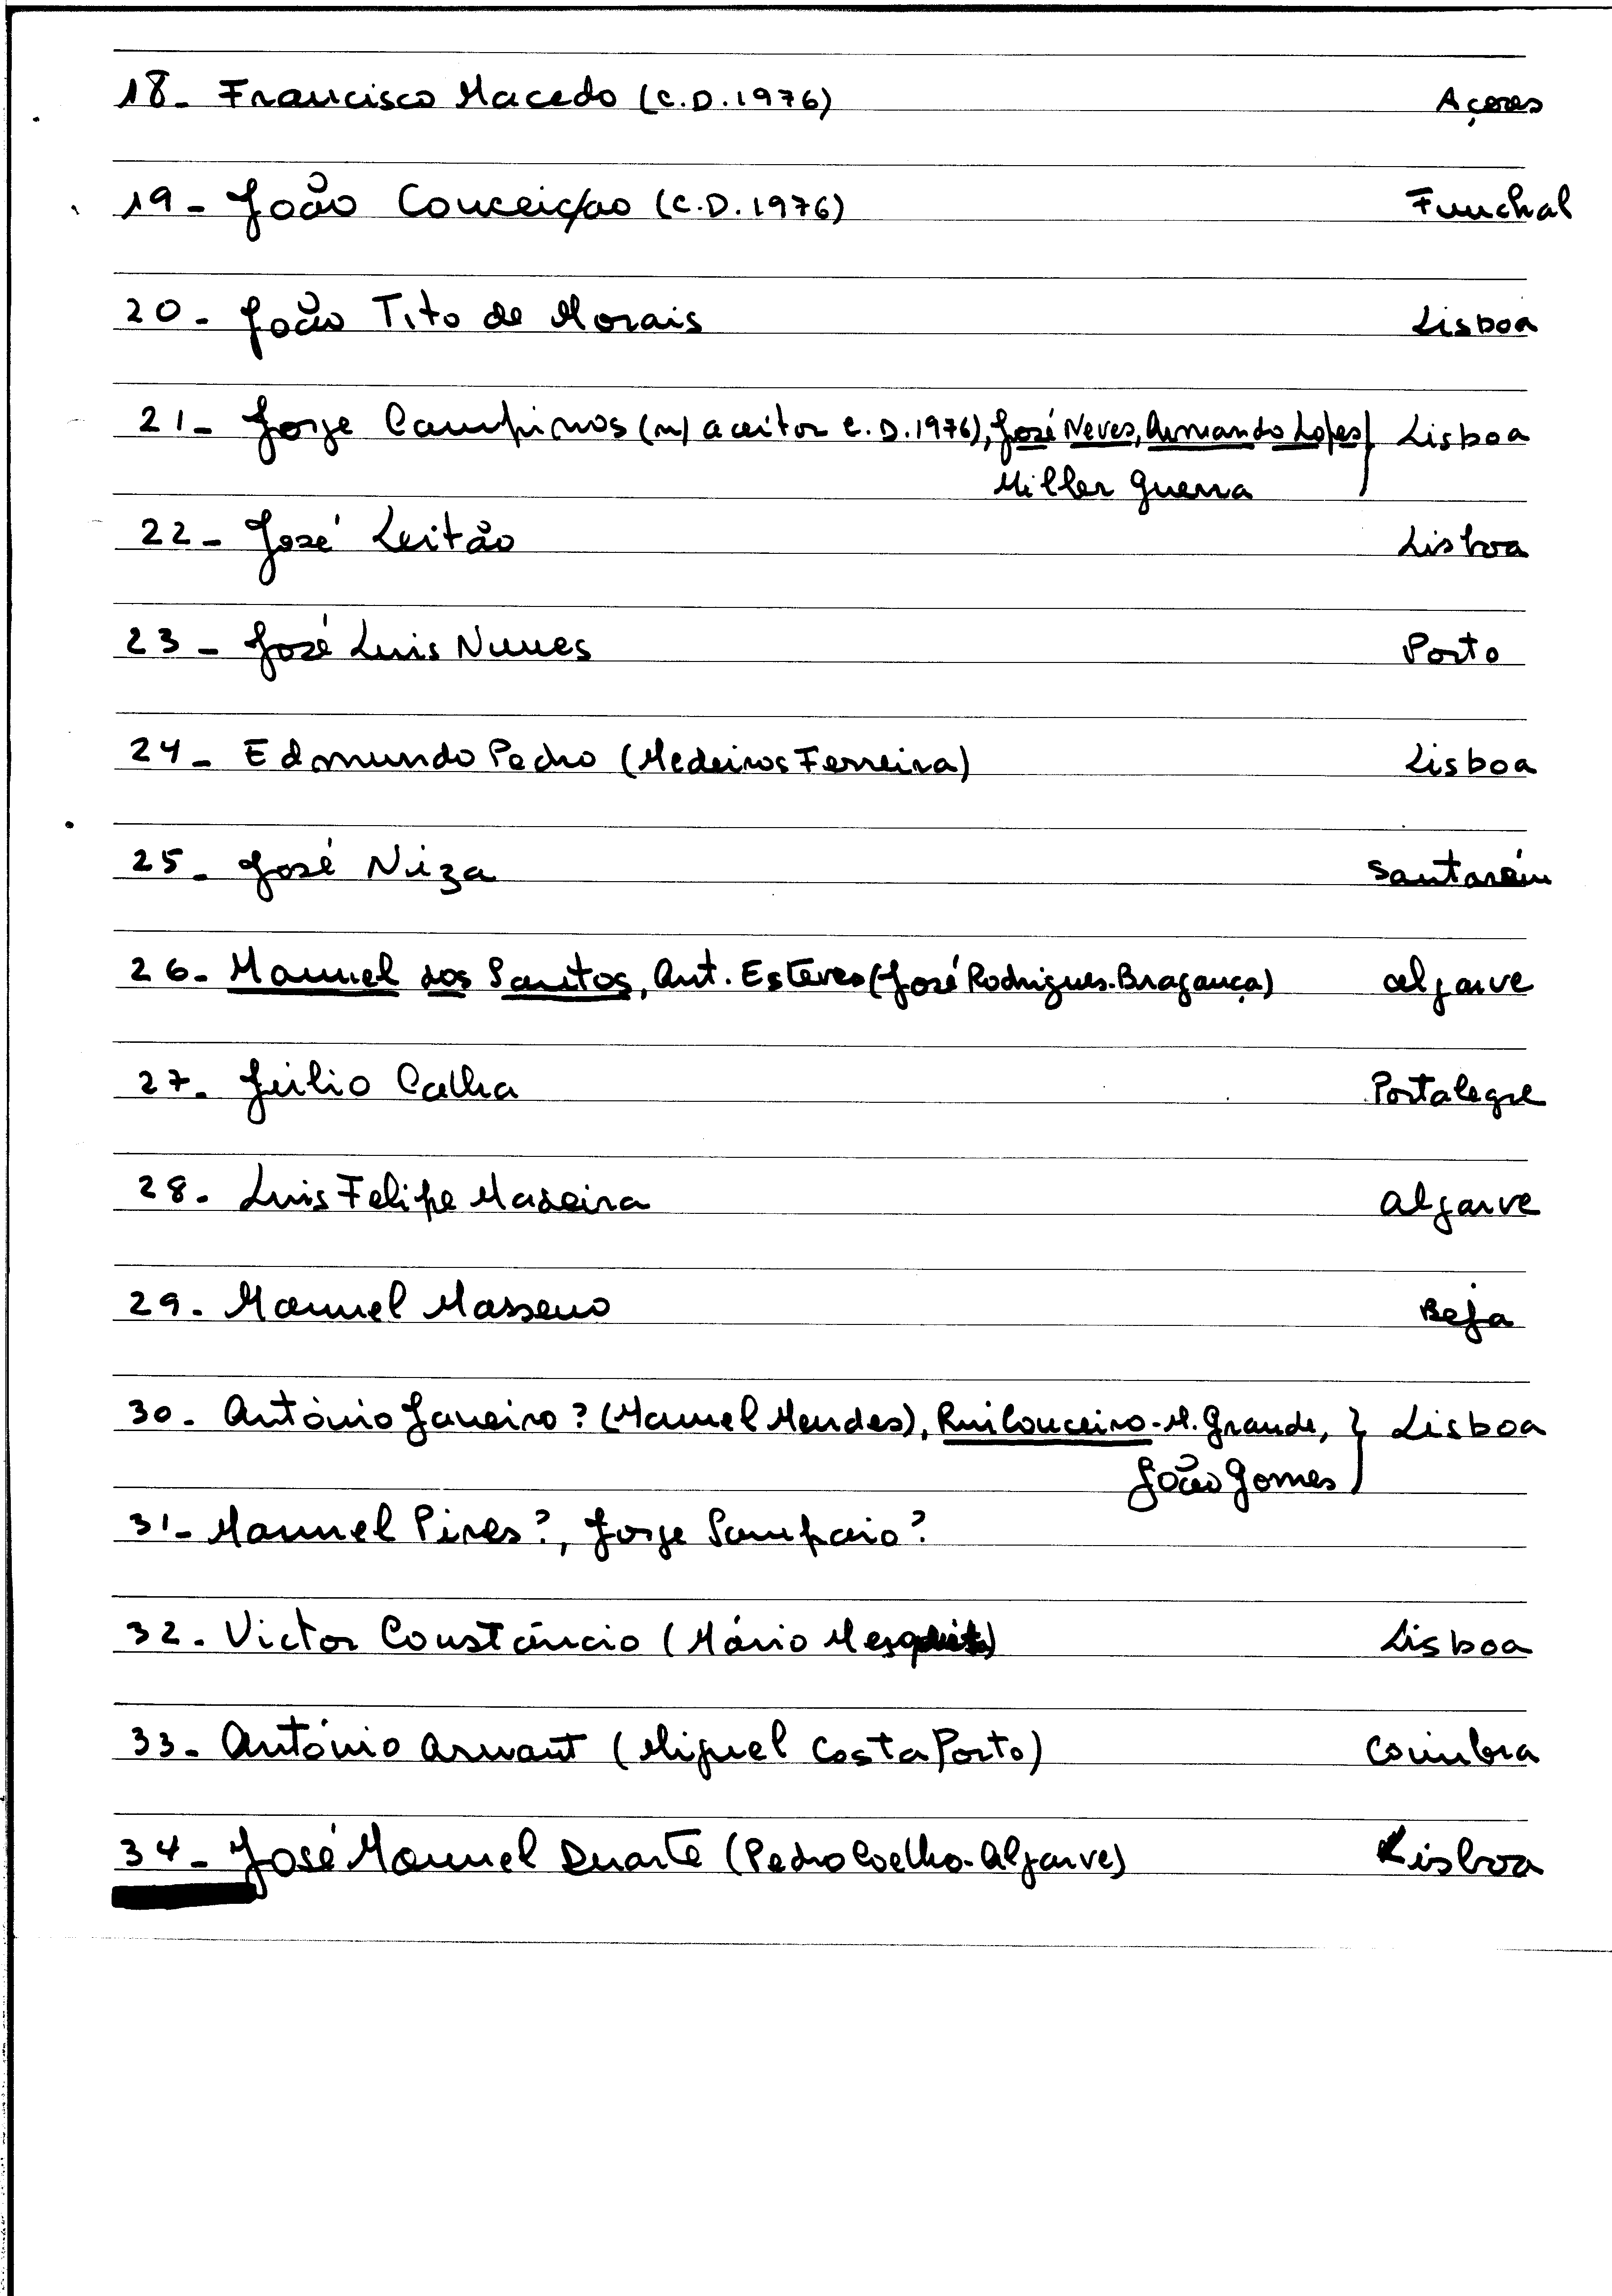 18- Francisco Macedo (C.D.1976) Açores
19- João Conceição (C.D.1976) Funchal
20- João Tito de Morais Lisboa
21- Jorge Campinos (n/ aceitou C.D.1976), José Neves, Armando Lopes } Lisboa
Miller Guerra
22- José Leitão Lisboa
23- José Luis Nunes Porto
24- Edmundo Pedro (Medeiros Ferreira) Lisboa
25- José Niza Santarém
26- Manuel dos Santos, Ant. Esteves (José Rodrigues-Bragança) Algarve
27- Júlio Calha Portalegre
28- Luis Felipe Madeira Algarve
29- Manuel Masseno Beja
30- António Janeiro? (Manuel Mendes), Rui Louceiro-M. Grande, } Lisboa
João Gomes
31- Manuel Pires?, Jorge Sampaio?
32- Victor Constâncio (Mário Mesquita) Lisboa
33- António Arnaut (Miguel Costa Porto) Coimbra
34- José Manuel Duarte (Pedro Coelho-Algarve) Lisboa